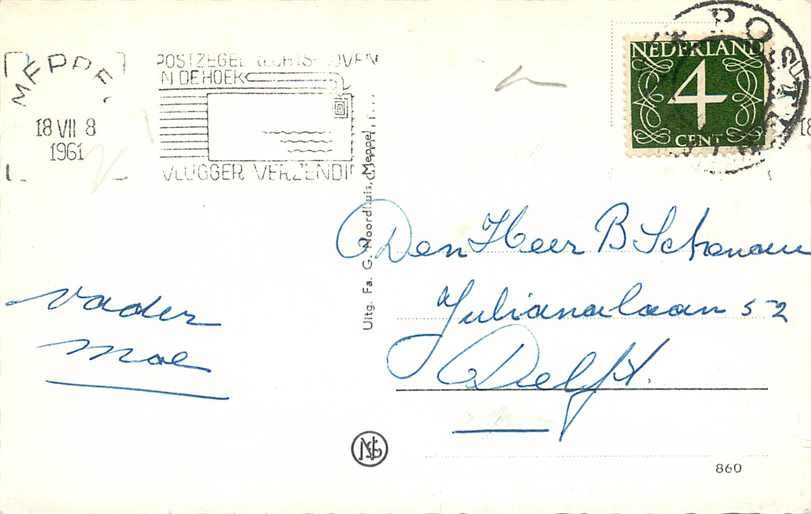 MEPPEL
18 VII 8
1961
POSTZEGEL RECHTS BOVEN
IN DE HOEK
VLUGGER VERZENDI
NEDERLAND
4
CENT
POST
18
Uitg. Fa. G. Noordhuis, Meppel
Den Heer B
Julianalaan 52
Delft.
Vader
Moe
860